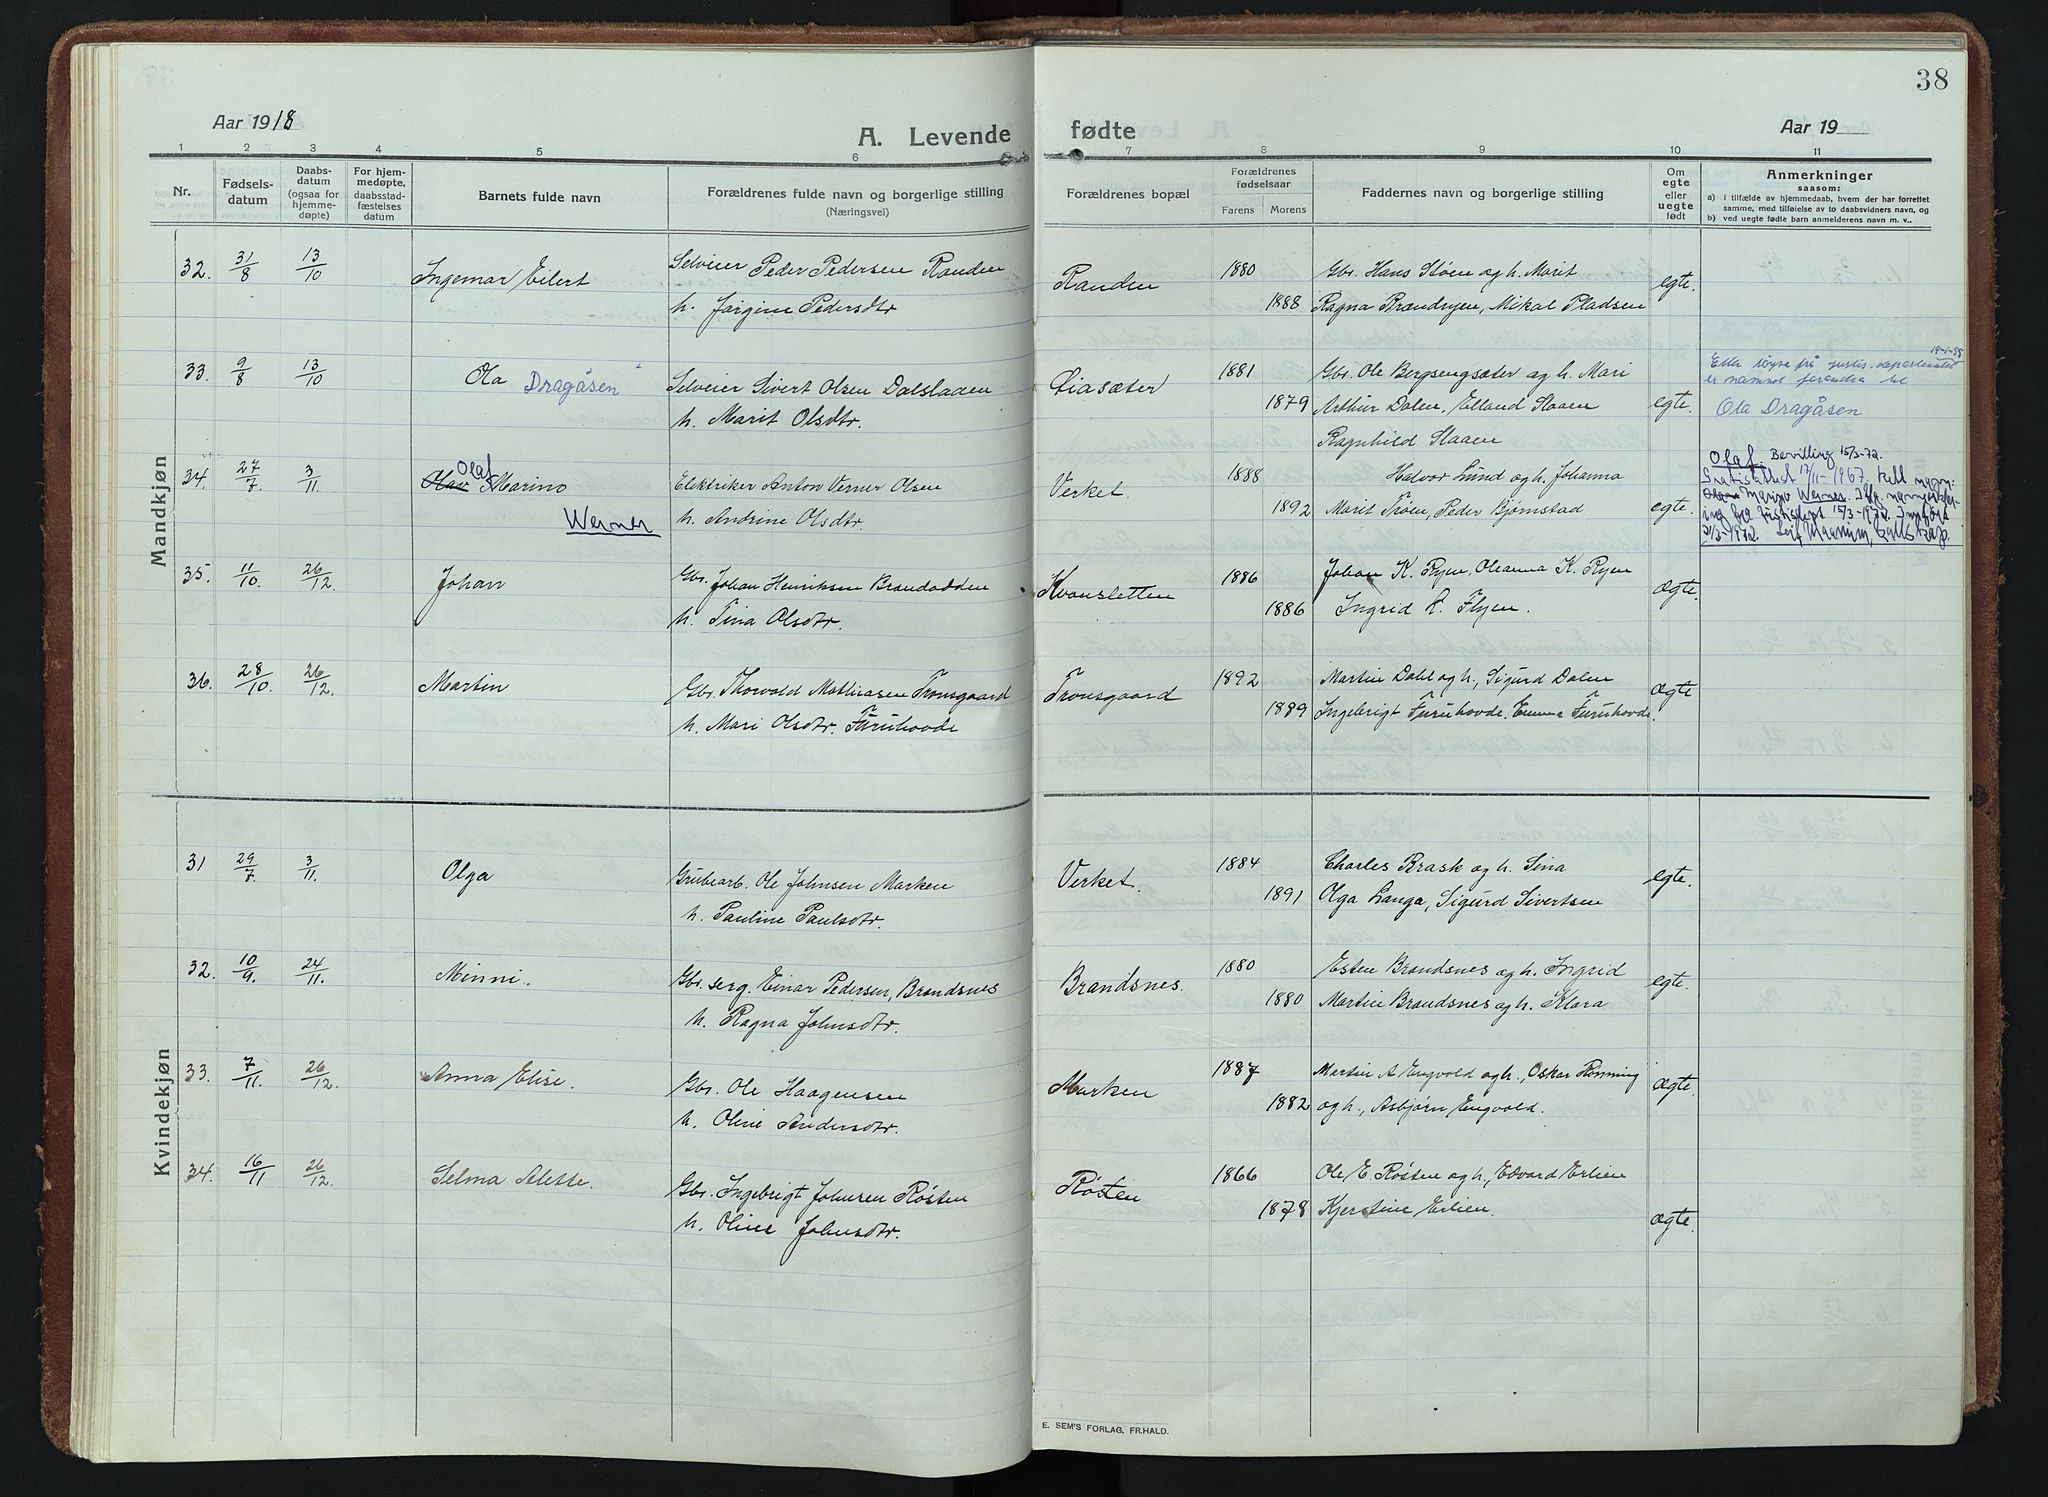 38
Aar 1918
A. Levende fødte
Aar 19
1 2 3 4 5 6 7 8 9 10 11
Nr.
Fødsels-
datum
Daabs-
datum
(ogsaa for
hjemme-
døpte)
For hjem-
medøpte,
daabsstad-
fæstelses
datum
Barnets fulde navn
Forældrenes fulde navn og borgerlige stilling
(Næringsvei)
Forældrenes bopæl
Forældrenes
fødselsaar
Farens Morens
Faddernes navn og borgerlige stilling
Om
egte
eller
uegte
født
Anmerkninger
saasom:
a) i tilfælde av hjemmedaab, hvem der har forrettet
samme, med tilføielse av to daabsvidners navn, og
b) ved uegte fødte barn anmelderens navn m. v..
Mandkjøn
32. 31/8 13/10 Ingemar Eilert Selveier Peder Pedersen Randen Randen 1880 Gbr. Hans Støen og h. Marit egte.
h. Jørgine Pedersdtr 1888 Ragna Brændryen, Mikal Pladsen
33. 9/8 13/10 Ola Dragåsen Selveier Sivert Olsen Dalslaaen Liasæter 1881 Gbr. Ole Bergsengsæter og h. Mari egte.
h. Marit Olsdtr. 1879 Arthur Dalen, Elland Slaaen
Ragnhild Slaaen
Etter løyve frå justis-departementet
er namnet forandra til
Ola Dragåsen
34. 27/7 3/11. Olav Olaf Marino Elektriker Anton Verner Olsen Verket. 1888 Halvor Lund og h. Johanna egte.
Werner h. Andrine Olsdtr. 1892 Marit Trøen, Peder Bjørnstad
Olaf. Bevilling 15/3-72.
1967. Fullt navn:
Marino Werner.
15/3-1972. Innført
35. 11/10. 26/12. Johan Gbr. Johan Henriksen Brandodden Kvansletten 1886 Johan K. Ryen, Oleanna K. Ryen ægte.
h. Tina Olsdtr. 1886 Ingrid K. Flyen.
36. 28/10. 26/12. Martin Gbr. Thorvald Mathiasen Tronsgaard Tronsgaard 1892 Martin Dahl og h., Sigurd Dalen ægte
h. Mari Olsdtr. Furuhovde 1889 Ingebrigt Furuhovde, Emma Furuhovde.
Kvindekjøn
31 29/7. 3/11. Olga Grubearb. Ole Johnsen Marken Verket. 1884 Charles Brask og h. Sina egte.
h. Pauline Paulsdtr. 1891 Olga Langa, Sigurd Sivertsen
32. 10/9. 24/11. Minni. Gbr. serg. Einar Pedersen, Brandsnes Brandsnes. 1880 Esten Brandsnes og h. Ingrid egte.
h. Ragna Johnsdtr. 1880 Martin Brandsnes og h. Klara
33. 7/11. 26/12. Anna Elise. Gbr. Ole Haagensen Marken 1887 Martin A Engvold og h., Oskar Rønning ægte
h. Oline Andersdtr. 1882 og h., Asbjørn Engvold.
34. 16/11 26/12. Selma Alette. Gbr. Ingebrigt Johnsen Røsten Røsten 1866 Ole E. Røsten og h., Edvard Erlien ægte.
h. Oline Johnsdtr. 1878 Kjerstine Erlien.
E. SEM'S FORLAG, FR.HALD.